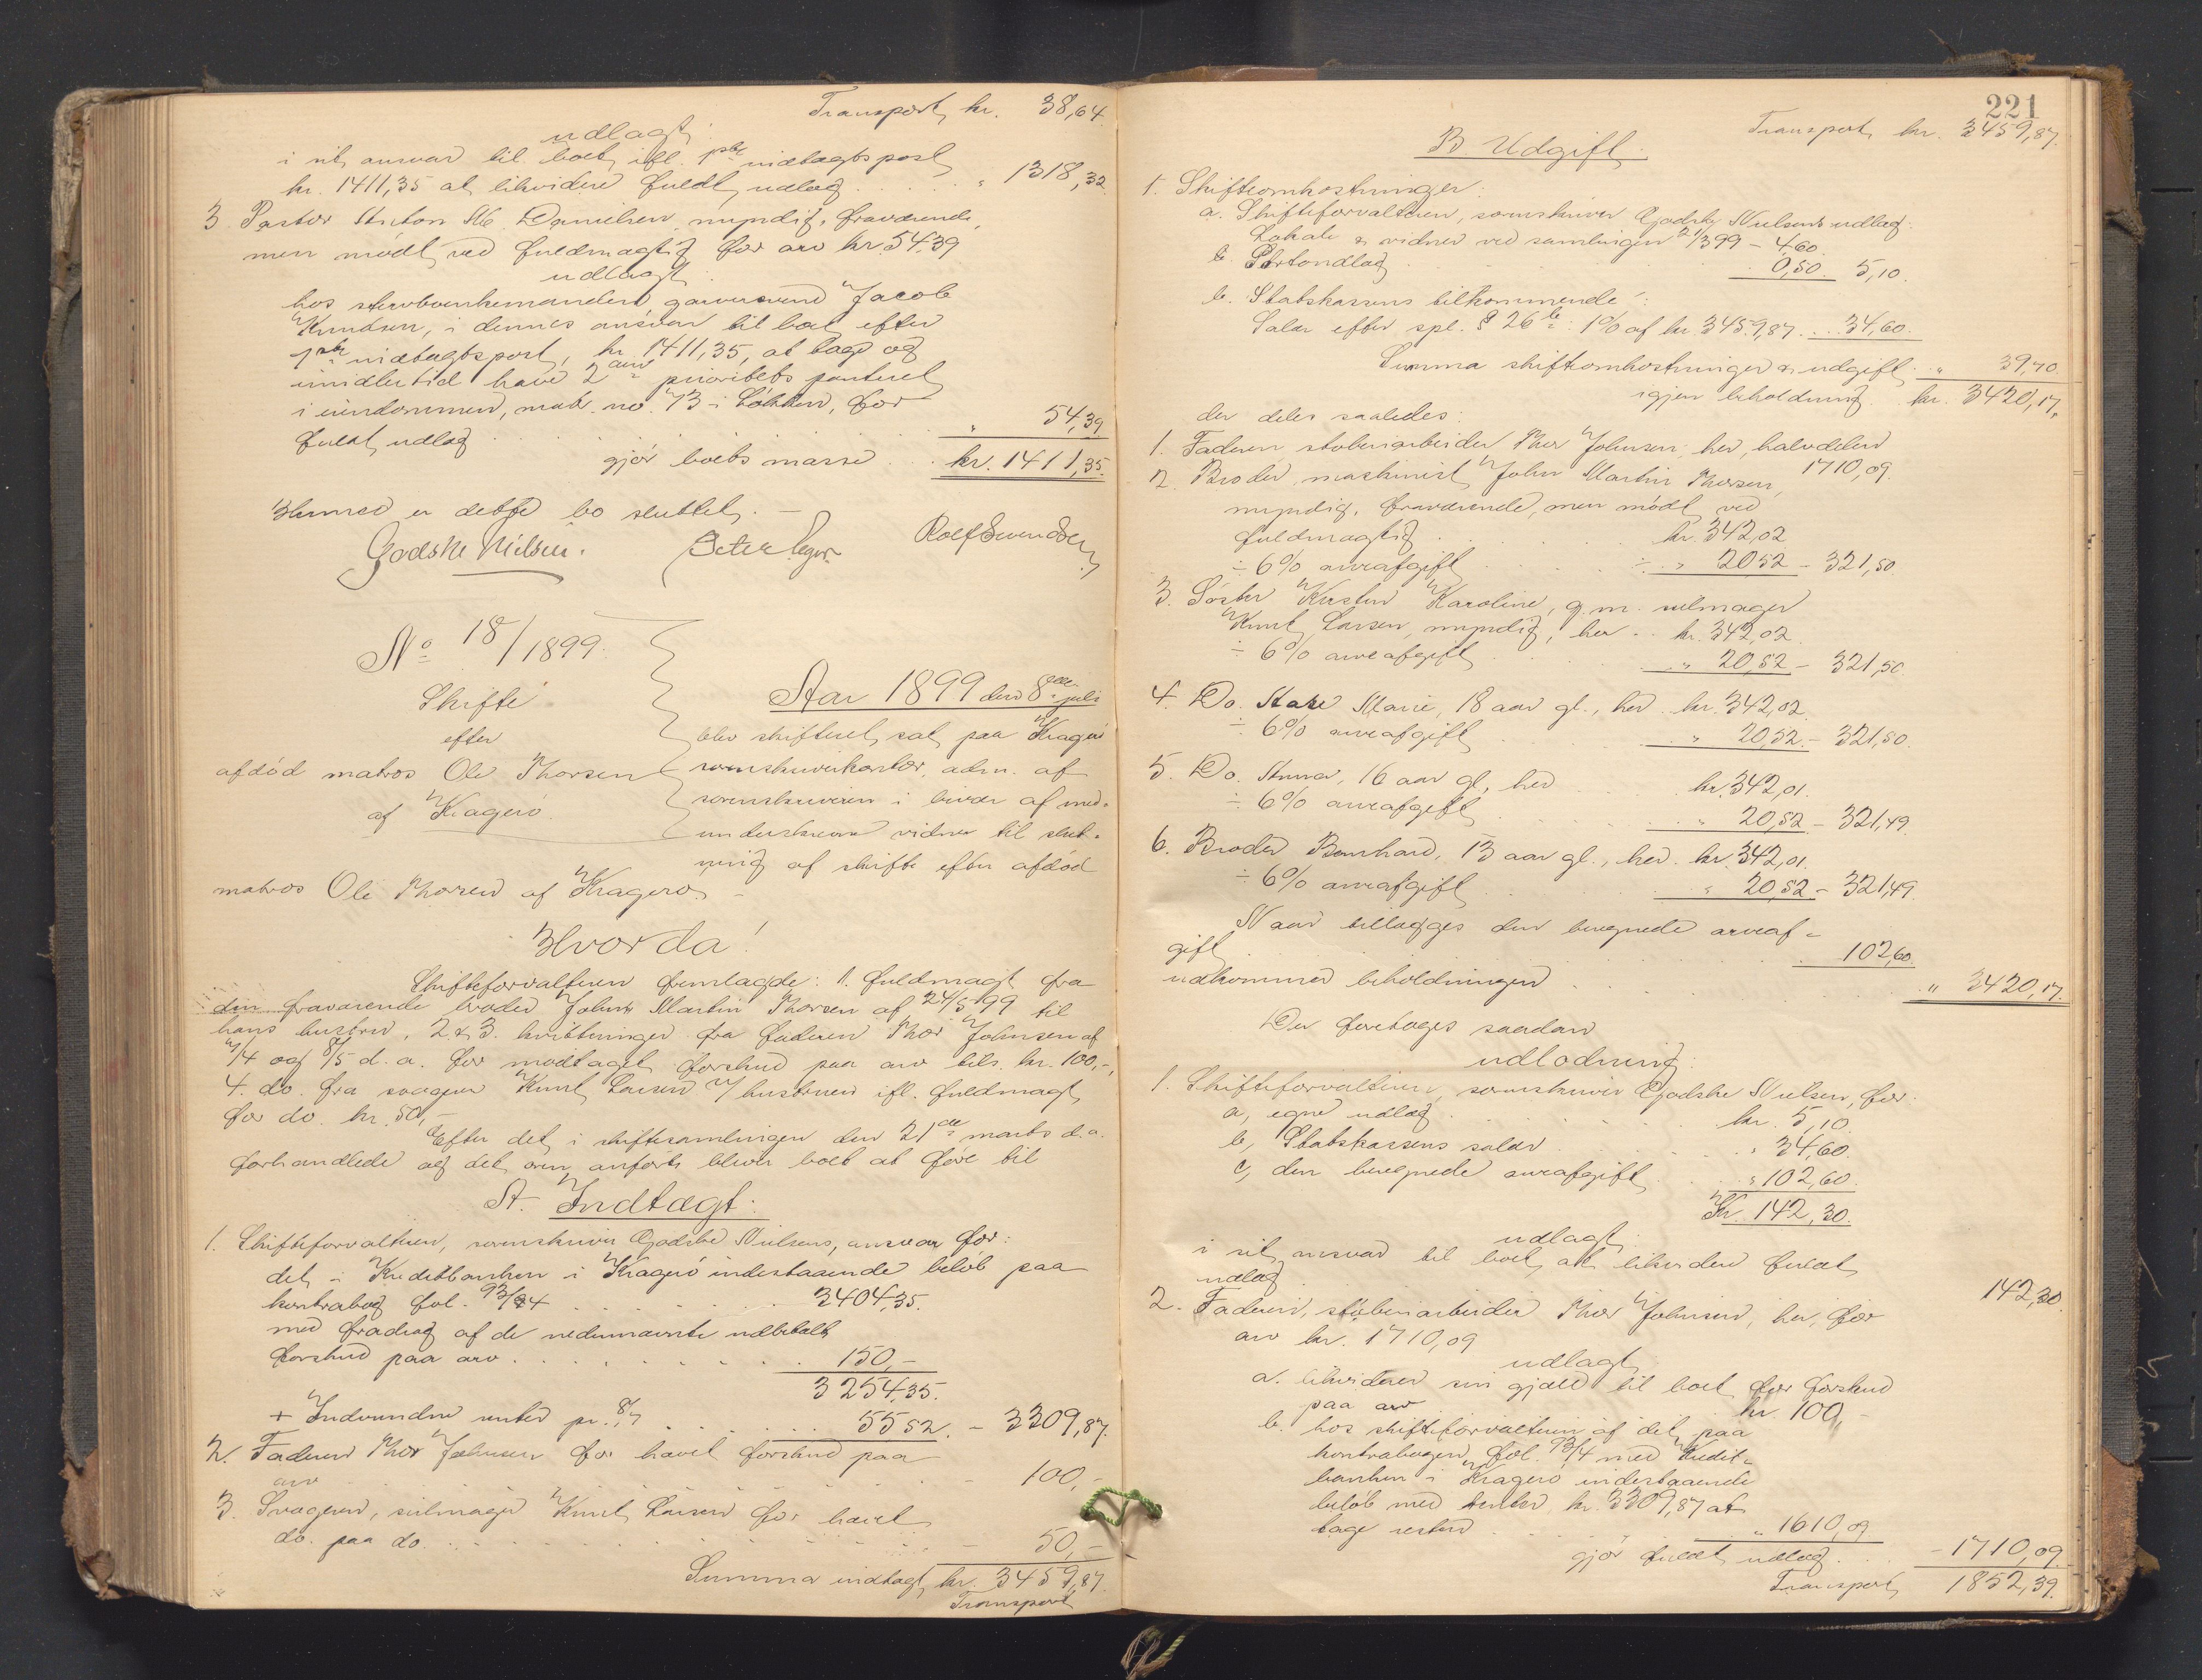 Transport kr. 38,64.
udlagt:
i sit ansvar til boet ifl. 1ste indtægtspost
kr. 1411,35 at likvidere fuldt udlæg . . . . . " 1318,32
3. Pastor Anton Danielsen, myndig, fraværende,
men mødt ved fuldmægtig for arv kr. 54,39
udlagt:
hos sterbоenkemanden garversvend Jacob
Knudsen, i dennes ansvar til boet efter
1ste indtægtspost, kr. 1411,35, at tage og
imidlertid have 2den prioritets panteret
i eiendommen, matr. no. 73 i Løkken, for
fuldt udlæg . . . . . " 54,39
gjør boets masse . . kr. 1411,35.
Hermed er dette bo sluttet. –
Godske Nielsen. Rolf Svendsen
No 18/1899.
Skifte
efter
afdød matros Ole Thorsen
af Kragerø.
Aar 1899 den 8de juli
blev skifteret sat paa Kragerø
sorenskriverkontor, adm. af
sorenskriveren i overvær af med-
underskrevne vidner til slut-
ning af skifte efter afdød
matros Ole Thorsen af Kragerø. –
Hvorda!
Skifteforvalteren fremlagde: 1. fuldmagt fra
den fraværende broder John Martin Thorsen af 24/5 99 til
hans hustru, 2 & 3. kvitteringer fra faderen Thor Johnsen af
4/4 og 8/5 d. a. for modtaget forskud paa arv tils. kr. 100,-,
4. do. fra svogeren Knut Larsen / hustruen ifl. fuldmagt
for do. kr. 50,-
Efter det i skiftesamlingen den 21de marts d.a.
forhandlede og det ovenanførte bliver boet at føre til
A. Indtægt:
1. Skifteforvalteren, sorenskriver Godske Nielsens, ansvar for:
det i Kreditbanken i Kragerø indestaaende beløb paa
kontrabog fol. 93/94 . . . . . 3404,35.
med fradrag af de nedennævnte udbetalte
forskud paa arv . . . . . 150,-
3254,35.
+ Indvundne renter pr. 8/7 . . . . . 55,52. – 3309,87.
2. Faderen Thor Johnsen for havet forskud paa
arv . . . . . – 100,-
3. Svogeren, seilmager Knut Larsen for havet
do. paa do. . . . . . – 50,-
Summa indtægt kr. 3459,87.
Transport
221
Transport kr. 3459,87.
B Udgift.
1. Skifteomkostninger:
a. Skifteforvalteren, sorenskriver Godske Nielsens udlæg:
Lokale & vidner ved samlingen 21/3 99 – 4,60
Portoudlæg . . . . . 0,50. 5,10.
b. Statskassens tilkommende:
Salær efter spl. § 26 b: 1% af kr. 3459,87 . . 34,60.
Summa skifteomkostninger & udgift . . " 39,70.
igjen beholdning . kr. 3420,17,
der deles saaledes:
1. Faderen, støberiarbeider Thor Johnsen, her, halvdelen
1710,09.
2. Broder, maskinist John Martin Thorsen,
myndig, fraværende, men mødt ved
fuldmægtig . . . . . kr. 342,02
÷ 6% arveafgift . . . . . ÷ " 20,52 – 321,50.
3. Søster Kirsten Karoline, g. m. seilmager
Knut Larsen, myndig, her . . kr. 342,02.
÷ 6% arveafgift . . . . . " 20,52 – 321,50
4. Do. Aase Marie, 18 aar gl., her . kr. 342,02.
÷ 6% arveafgift . . . . . " 20,52. – 321,50.
5. Do. Anna, 16 aar gl., her . . . kr. 342,01.
÷ 6% arveafgift . . . . . " 20,52 – 321,49.
6. Broder Bernhard, 13 aar gl., her . kr. 342,01.
÷ 6% arveafgift . . . . . " 20,52 – 321,49.
Naar tillægges den beregnede arveaf-
gift . . . . . 102,60.
udkommer beholdningen . . . . . " 3420,17.
Der foretages saadan
udlodning:
1. Skifteforvalteren, sorenskriver Godske Nielsen, for:
a, egne udlæg . . . . . kr. 5,10.
b, Statskassens salær . . . . . " 34,60.
c, den beregnede arveafgift . . . " 102,60.
Kr. 142,30.
udlagt:
i sit ansvar til boet at likvidere fuldt
udlæg . . . . . 142,30.
2. Faderen, støberiarbeider Thor Johnsen, her, for
arv kr. 1710,09
udlagt:
a. likviderer sin gjæld til boet for forskud
paa arv . . . . . kr. 100,-
b. hos skifteforvalteren af det paa
kontrabogen fol. 93/4 med Kredit-
banken i Kragerø indestaaende
beløb med renter kr. 3309,87 at
tage resten . . . . . " 1610,09
gjør fuldt udlæg . . – 1710,09.
Transport 1852,39.